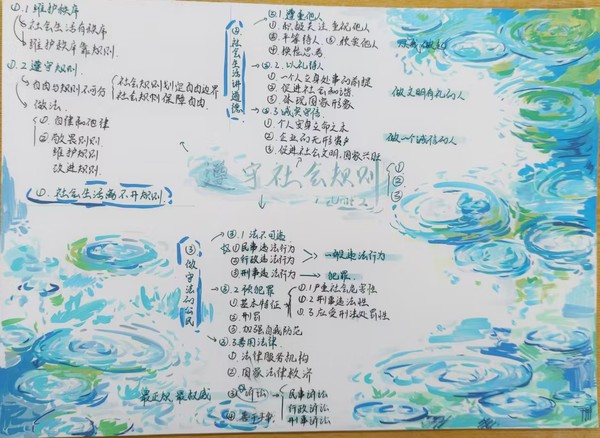 ①.1 维护秩序
社会生活有秩序
维护秩序靠规则.
①.2 遵守规则.
自由与规则不可分
社会规则划定自由边界
社会规则保障自由
做法.
① 自律和他律
② 敬畏规则
维护规则
改进规则
①. 社会生活离不开规则.
②社会生活讲道德
②.1 遵重他人
① 积极关注重视他人
② 平等待人 ③ 欣赏他人
④ 换位思考
②.2. 以礼待人
① 一个人立身处事的前提
② 促进社会和谐
③ 体现国家形象
②.3 诚实守信.
① 个人安身立命之本
② 企业的无形资产
③ 促进社会文明,国家兴旺
做文明有礼的人
做一个诚信的人
①
②
③
遵守社会规则
③做守法的公民
③.1 法不可违
①民事违法行为
②行政违法行为
一般违法行为
③刑事违法行为
犯罪.
③.2 预犯罪
① 基本特征
①.1严重社会危害性
①.2 刑事违法性
①.3 应受刑法处罚性
② 刑罚
③ 加强自我防范
③.3善用法律
① 法律服务机构
② 国家法律救济
③ 诉讼
民事诉讼
行政诉讼
刑事诉讼
最正义 最权威